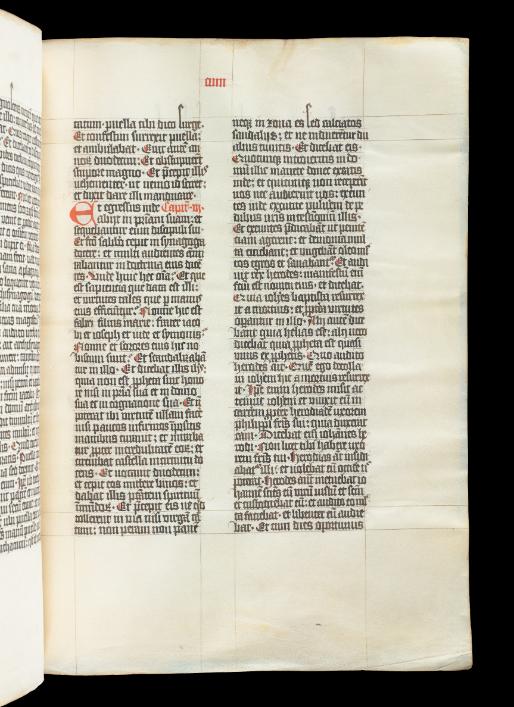 cum
mcum. puella tibi dico surge.
Et confestim surrexit puella:
et ambulabat. Erat autē an
noꝝ duodecim: Et obstupuerūt
stupore magno. Et p̄cepit illis
vehementer: ut nemo id sciret:
et dixit dari illi manducare.
Et egressus inde Capit. vi.
abiit in p̄riam suam: et
sequebantur eum discipuli sui:
Et fc̄o sabb̄o cepit in synagoga
docere: et multi audientes am̄i
rabantur in doctrina eius dicē
tes. Unde huic hec oīa: Et que
est sapientia que data est illi:
et virtutes tales que p̄ manus
eius efficiūtur. Nonne hic est
fabri filius marie: frater iaco
bi et ioseph et iude et symonis:
Nonne et sorores eius hic no
biscum sunt. Et scandalizabā
tur in illo. Et dicebat illis ihs̄:
quia non est ꝓpheta sine hono
re nisi in pr̄ia sua et in domo
sua et in cognatione sua. Et nō
poterat ibi virtutē ullam face
nisi paucos infirmos īpositis
manibus curauit: et miraba
tur ꝓpter incredulitatē eoꝝ: et
circuibat castella in circuitu do
cens. Et vocauit duodecim:
et cepit eos mittere binos: et
dabat illis p̄tātem spirituū
īmūdoꝝ. Et p̄cepit eis ne qd
tollerent in via nisi virgā tā
tum: non peram non panē
neqꝫ in zona es sed calciatos
sandaliis: et ne induerētur du
abus tunicis. Et dicebat eis.
Quocūqꝫ introieritis in do
mū illic manete donec exeatis
inde: et quicūqꝫ non receperīt
vos nec audierint vos: exeun
tes inde excutite puluerē de pe
dibus vr̄is in testimoniū illis.
Et exeuntes p̄dicabāt ut penite
ciam agerent: et demonia mul
ta eiciebant: et ungebāt oleo mul
tos egros et sanabant. Et audi
uit rex herodes: manifestū em̄
fc̄m est nomen eius: et dicebat.
Quia ioh̄es baptista resurrex
it a mortuis: et ꝓpt̄ea virtutes
opantur in illo. Alij autē dice
bant quia helias est: alij vero
dicebāt quia ꝓpheta est quasi
unus ex ꝓphetis. Quo audito
herodes ait. Quē ego decolla
ui ioh̄em hic a mortuis resurrex
it. Ip̄e enim herodes misit ac
tenuit ioh̄em et vinxit eū in
carcerē ꝓpter herodiadē uxorem
philippi fr̄is sui: quia duxerat
eam. Dicebat em̄ ioh̄annes he
rodi. Non licet tibi habere uxo
rem fr̄is tui. Herodias aūt insidi
abat̄ illi: et volebat eū occidere nec
poterat. Herodes aūt metuebat io
hannē sciēs eū virū iustū et sc̄m
et custodiebat eū: et audito eo mul
ta faciebat: et libenter eū audie
bat. Et cum dies oportunus